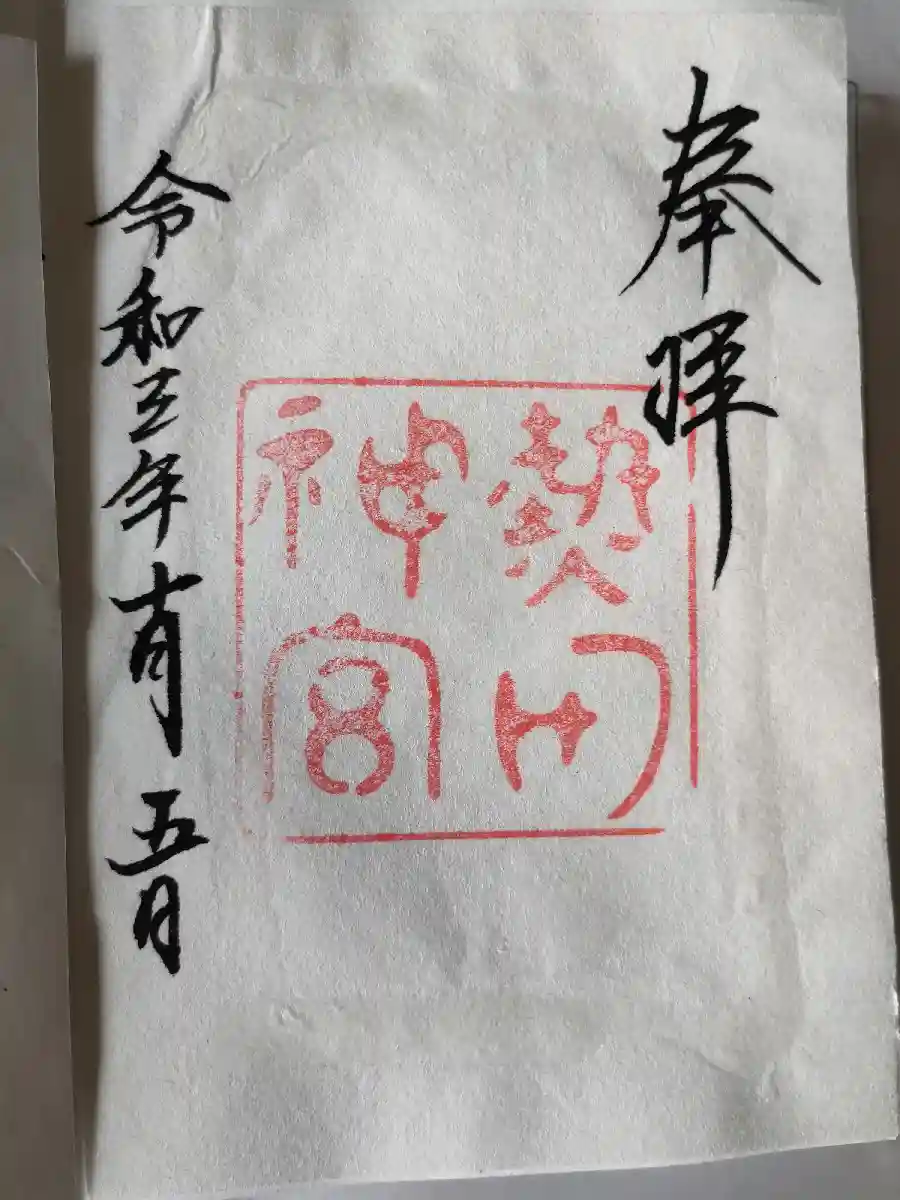 奉拝
熱田
神宮
令和三年十月五日